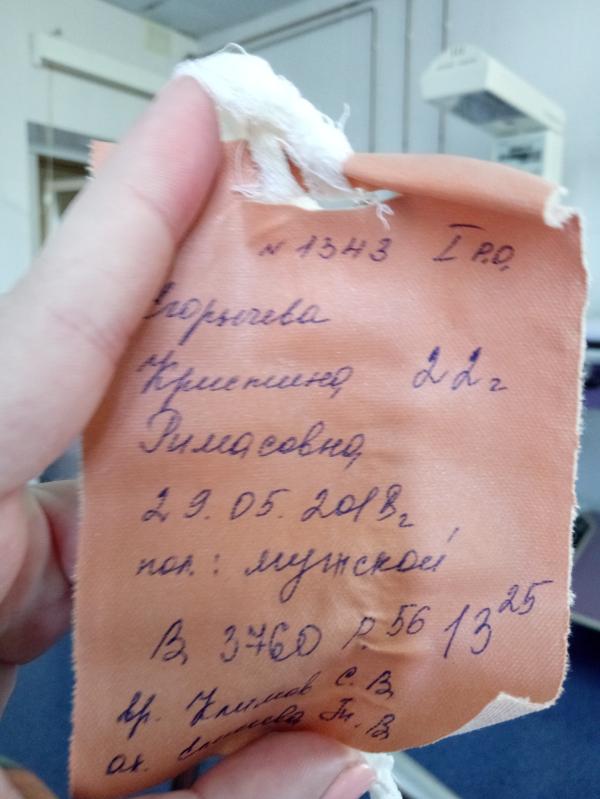 N 1343 I р.о.
Егорычева
Кристина, 22 г
Римасовна,
29.05.2018 г
пол.: мужской
В 3760 Р. 56 13 25
вр. Климов С. В
ак. Гн. В